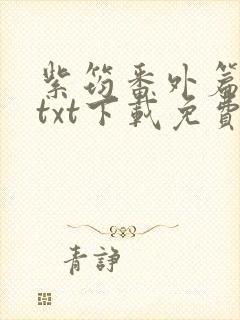 紫筠番外篇
txt下載免費
青諍